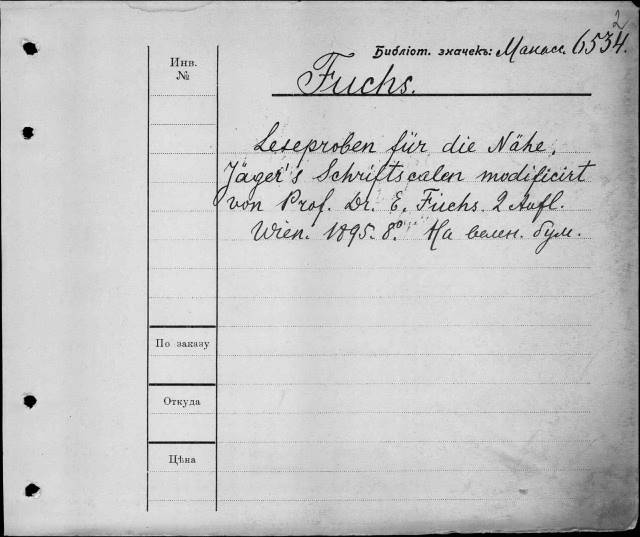 2
Библіот. значекъ: Манасс. 6534.
Инв. №
Fuchs.
Leseproben für die Nähe,
Jäger's Schriftscalen modificirt
von Prof. Dr. E. Fuchs. 2 Aufl.
Wien. 1895. 8º. На велен. бум.
По заказу
Откуда
Цѣна